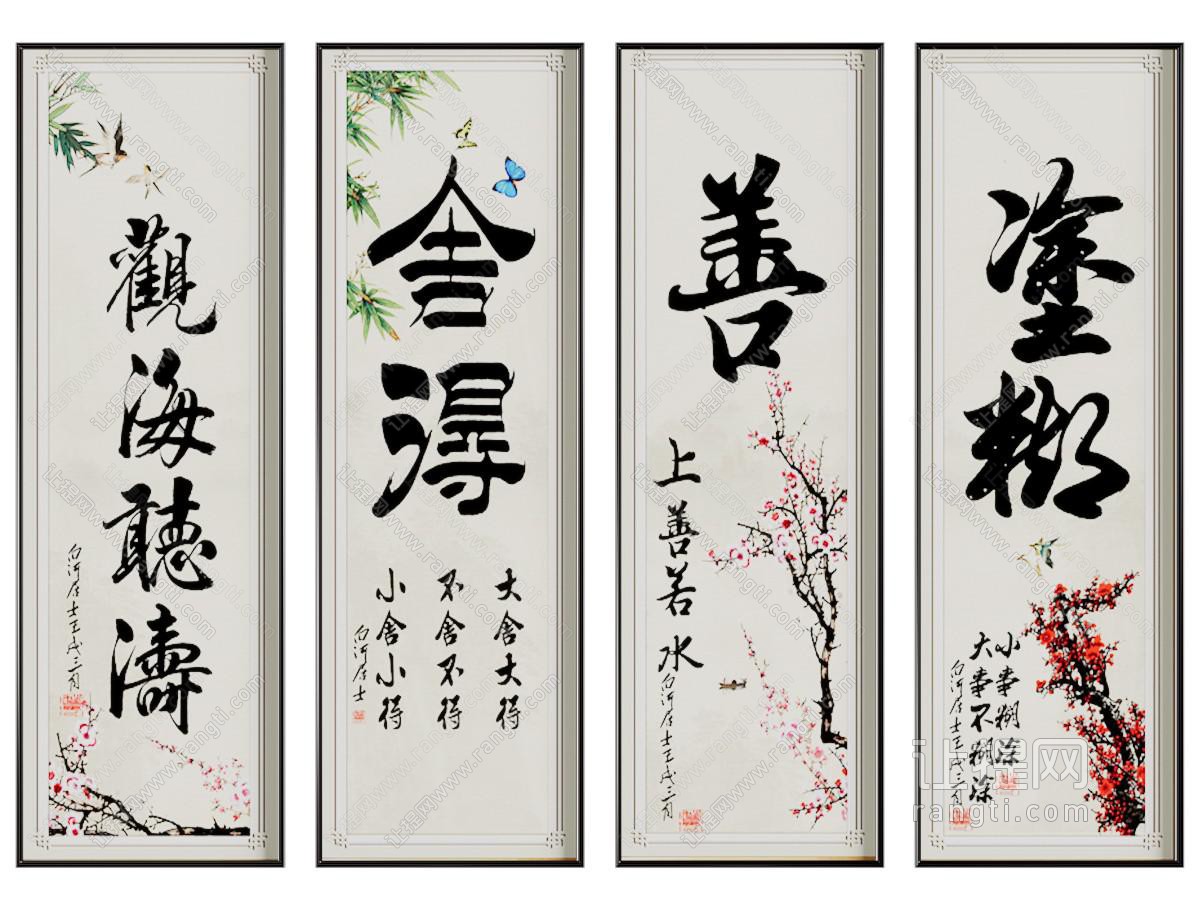 觀海聽濤
白河居士壬戌三月
舍得
大舍大得
不舍不得
小舍小得
白河居士
善
上善若水
白河居士壬戌三月
塗糊
小事糊涂
大事不糊涂
白河居士壬戌三月
让程网
rangti.com